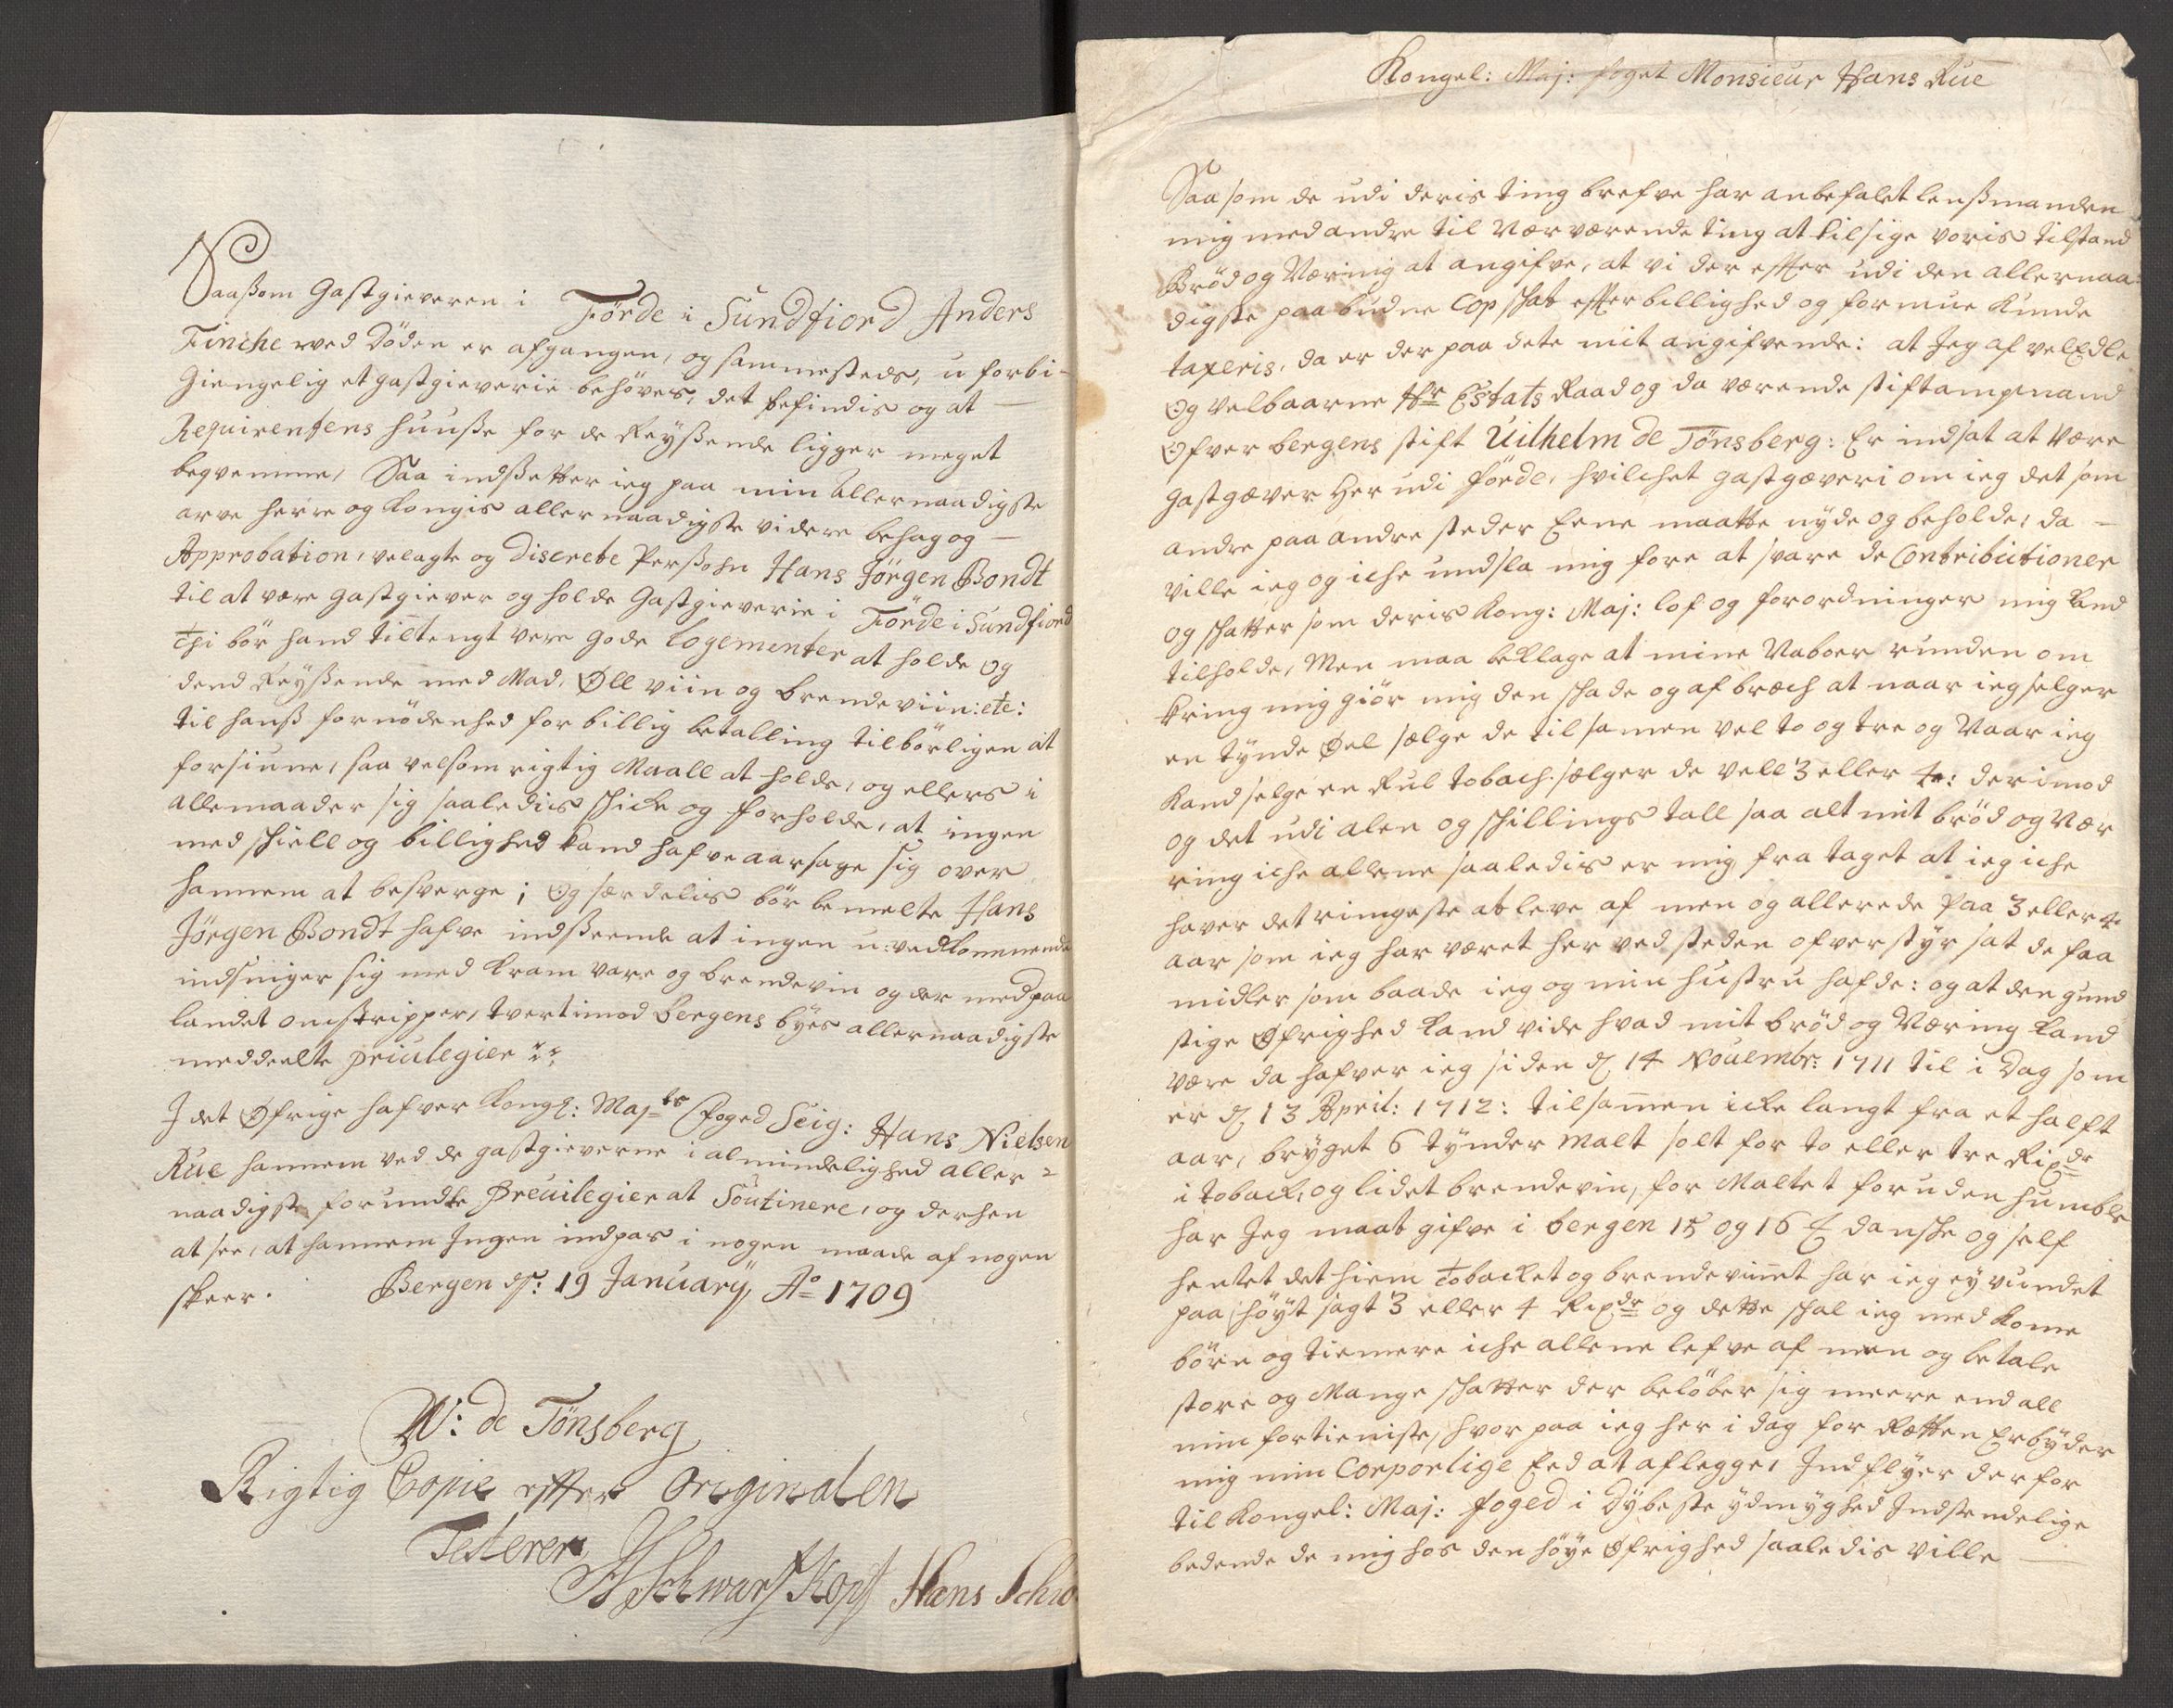 Saasom Gastgieveren i Förde i Sundfiord Anders
Finche ved Döden er afgangen, og sammesteds, u forbi-
giengelig et gastgieverie behöves, det befindis og at
Requirentens huusse for de Reyssende ligger meget
beqvemme, Saa indssetter ieg paa min allernaadigste
arve herre og Kongis allernaadigste videre behag og
Approbation, velagte og Discrete Perssohn Hans Jörgen Bondt
til at være gastgiever og holde Gastgieverie i Förde i Sundfiord
thi bör hand tiltengt vere gode Logementer at holde og
dend Reyssende med Mad, Øll viin og brendeviin: etc:
til hanss fornödenhed for billig betalling tilbörligen at
forsiune, saa velsom rigtig Maall at holde, og ellers i
allemaader sig saaledis skicke og forholde, at ingen
med skiell og billighed kand hafve aarsage sig over
hannem at besverge; Og særdelis bör bemelte Hans
Jörgen Bondt hafve indsseende at ingen u-vedkommende
indsniger sig med kram vare og brendevin og der med paa
landet omstripper, tvertimod Bergens byes allernaadigste
meddeelte priulegier
I det Øfrige hafver Kongl: Maj:ts Foged Seig: Hans Nielsen
Rue hannem ved de gastgieverne i almindelighed aller-
naadigste forundte Preuilegier at Soutinere, og derhen
at see, at hannem Ingen indpas i nogen maade af nogen
skeer. Bergen d: 19 Januarij Ao 1709
W: de Tönsberg
Rigtig Copie effter Originalen
Testerer
A Schwartzkopf Hans Schrö
Kongel: Maj: foget Monsieur Hans Rue
Saasom de udi deris ting brefve har anbefalet lenssmanden
mig med andre til nærværende ting at tilsige voris tilstand
Bröd og Næring at angifve, at vi der effter udi den allernaa-
digste paabudne Cop skat effter billighed og formue kunde
taxeris, da er der paa dete mit angifvende: at Jeg af velEdle
og velbaarne Hr Estats Raad og da værende stiftampmand
Ofver bergens stift Uilhelm de Tönsberg: Er indsat at være
gastgæver Her udi förde, hvilchet gastgæveri om ieg det som
andre paa andre steder Eene maatte nyde og beholde, da
ville ieg og iche undsla mig fore at svare de Contributioner
og skatter som deris Kong: Maj: lof og forordninger mig kand
tilholde, Men maa beklage at mine Naboer runden om
kring mig giör mig den skade og afbræch at naar ieg selger
en tynde Øel sælge de tilsamen vel to og tre og Naar ieg
Kand selge en Rul tobach sælger de vell 3 eller 4e: derimod
og det udi alen og skillings tall saa alt mit bröd og Nær
ring iche allene saaledis er mig fra taget at ieg iche
haver det ringeste at leve af men og allerede paa 3 eller 4
aar som ieg har været her ved steden ofverstyr sat de faa
midler som baade ieg og min hustru hafde: og at den gund
stige Øfrighed kand vide hvad mit bröd og Næring kand
være da hafver ieg siden d 14 Nouembr: 1711 til i Dag som
er d 13 April: 1712: tilsammen icke langt fra et halft
aar, brygget 6 tynder malt solt for to eller tre Rixdr
i toback, og lidet brendevin, for Maltet foruden humble
har Jeg maat gifve i bergen 15 og 16 ℔ danske og self
hentet det hiem tobacket og brendevinet har ieg ey vundet
paa höyt sagt 3 eller 4 Rixdr og dette skal ieg med kone
börn og tienere iche allene lefve af men og betale
store og Mange skatter der belöber sig meere end all
min fortieniste, hvor paa ieg her i dag for Retten Erbyder
mig min Corporlige Eed at aflegge, Indflyer derfor
til Kongel: Maj: foged i dybeste ydmyghed Indstendelige
bedende de mig hos den höye Øfrighed saaledis ville